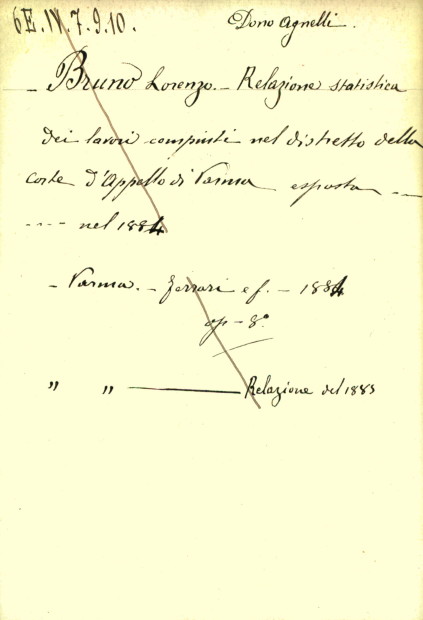 6E.IV.7.9.10. Dono Agnelli.
- Bruno Lorenzo. - Relazione statistica
dei lavori compiuti nel distretto della
Corte d'Appello di Parma esposta ---
---- nel 1884
- Parma. - Ferrari e f. - 1884
op - 8°
" " ——— Relazione del 1885